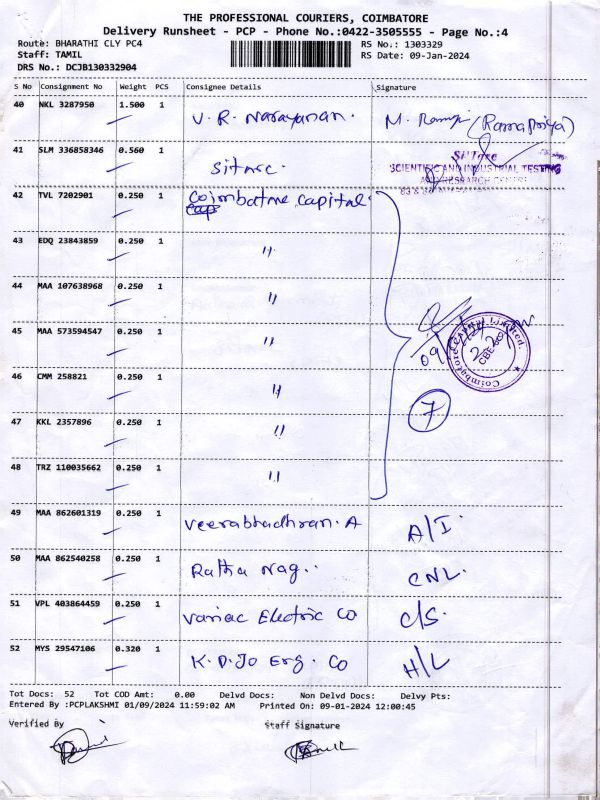 THE PROFESSIONAL COURIERS, COIMBATORE
Delivery Runsheet - PCP - Phone No.:0422-3505555 - Page No.:4
Route: BHARATHI CLY PC4 RS No.: 1303329
Staff: TAMIL RS Date: 09-Jan-2024
DRS No.: DCJB130332904
S No Consignment No Weight PCS Consignee Details Signature
40 NKL 3287950 1.500 1 V. R. Narayanan. M. (Ramapriya)
41 SLM 336858346 0.560 1 Sitarc. SiTarc
SCIENTIFIC AND INDUSTRIAL TESTING
AND RESEARCH CENTRE
42 TVL 7202901 0.250 1 Coimbatore Capital.
43 EDQ 23843859 0.250 1 "
44 MAA 107638968 0.250 1 "
45 MAA 573594547 0.250 1 " 09/ Coimbatore Capital Limited. CBE
46 CMM 258821 0.250 1 " 7
47 KKL 2357896 0.250 1 "
48 TRZ 110035662 0.250 1 "
49 MAA 862601319 0.250 1 Veerabhadhran. A A/I.
50 MAA 862540258 0.250 1 Ratha Nag.. CNL.
51 VPL 403864459 0.250 1 Variac Electric Co C/S.
52 MYS 29547106 0.320 1 K.D.Jo Erg. Co H/L
Tot Docs: 52 Tot COD Amt: 0.00 Delvd Docs: Non Delvd Docs: Delvy Pts:
Entered By :PCPLAKSHMI 01/09/2024 11:59:02 AM Printed On: 09-01-2024 12:00:45
Verified By Staff Signature